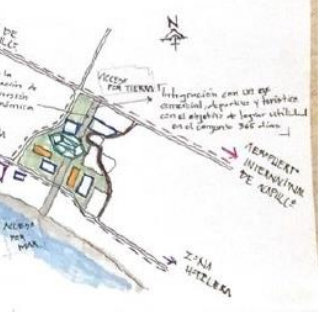 DE
la
N
ACCESO
POR TIERRA
Integración con un eje
comercial, deportivo y turístico
con el objetivo de lograr utilidad
en el conjunto 365 días
AEROPUERTO
INTERNACIONAL
DE
ACCESO
POR
MAR
ZONA
HOTELERA